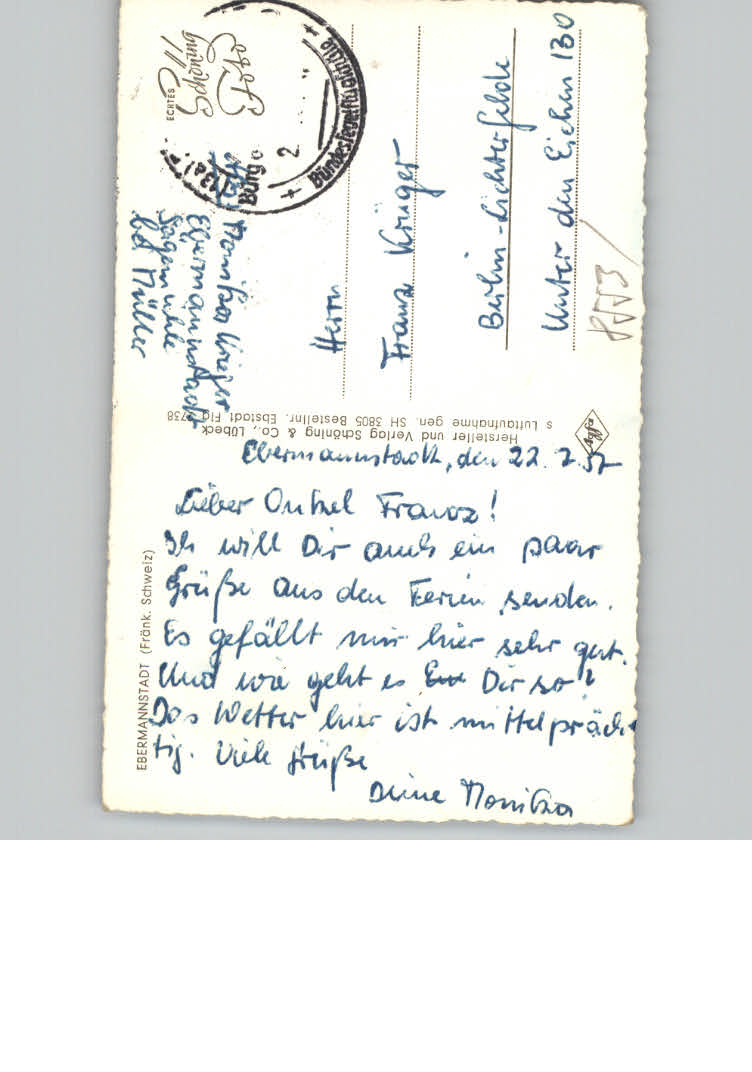 Ebermannstadt, den 22.7.57
Lieber Onkel Franz!
Ich will Dir auch ein paar
Grüße aus den Ferien senden.
Es gefällt mir hier sehr gut.
Und wie geht es Dir so?
Das Wetter hier ist mittelpräch-
tig. Viele Grüße
Deine Monika
EBERMANNSTADT (Fränk. Schweiz)
Hersteller und Verlag Schöning & Co., Lübeck
s Luftaufnahme gen. SH 3805 Bestellnr. Ebstadt Flg 2738
Agfa
Herrn
Franz Krüger
Berlin-Lichterfelde
Unter den Eichen 130
Monika Krüger
Ebermannstadt
Sägemühle
bei Müller
ECHTES
Schöning
Foto
(13a)
Burg
2
Bundesfegelflugschule